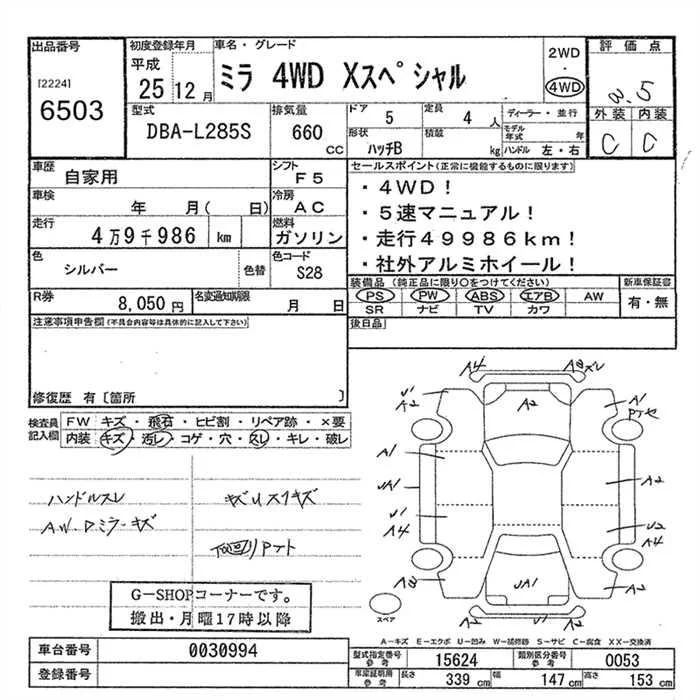 出品番号
[2224]
6503
初度登録年月
平成
25 12月
車名・グレード
ミラ 4WD Xスペシャル
2WD
・
4WD
評価点
3.5
外装 内装
C C
型式
DBA-L285S
排気量
660
CC
ドア
5
定員
4人
形状
ハッチB
積載
kg
ディーラー・並行
モデル年式 年
ハンドル 左・右
車歴
自家用
シフト
F5
車検
年 月( 日)
冷房
AC
走行
4万9千986 km
燃料
ガソリン
色
シルバー
色替
色コード
S28
R券
8,050円
名変通知期限
月 日
セールスポイント(正常に機能するものに限ります)
・4WD!
・5速マニュアル!
・走行49986km!
・社外アルミホイール!
装備品 (純正品に限り○をつけてください)
PS PW ABS エアB AW
SR ナビ TV カワ
新車保証書
有・無
後日品
注意事項申告欄(不具合内容等は具体的に記入して下さい)
修復歴 有〔箇所 〕
検査員記入欄
FW キズ・飛石・ヒビ割・リペア跡・×要
内装 キズ・汚レ・コゲ・穴・スレ・キレ・破レ
ハンドルスレ
AW.Dミラーキズ
キズUスリキズ
G-SHOPコーナーです。
搬出・月曜17時以降
A4
U1
A2
A2
A1
A1
A2
JA1
U1
A4
U2
A4
JA1
A2
U2
スペア
A-キズ E-エクボ U-凹み W-補修跡 S-サビ C-腐食 XX-交換済
車台番号
0030994
登録番号
型式指定番号
参考
15624
類別区分番号
参考
0053
車庫証明用
参考
長さ 339 cm
幅 147 cm
高さ 153 cm